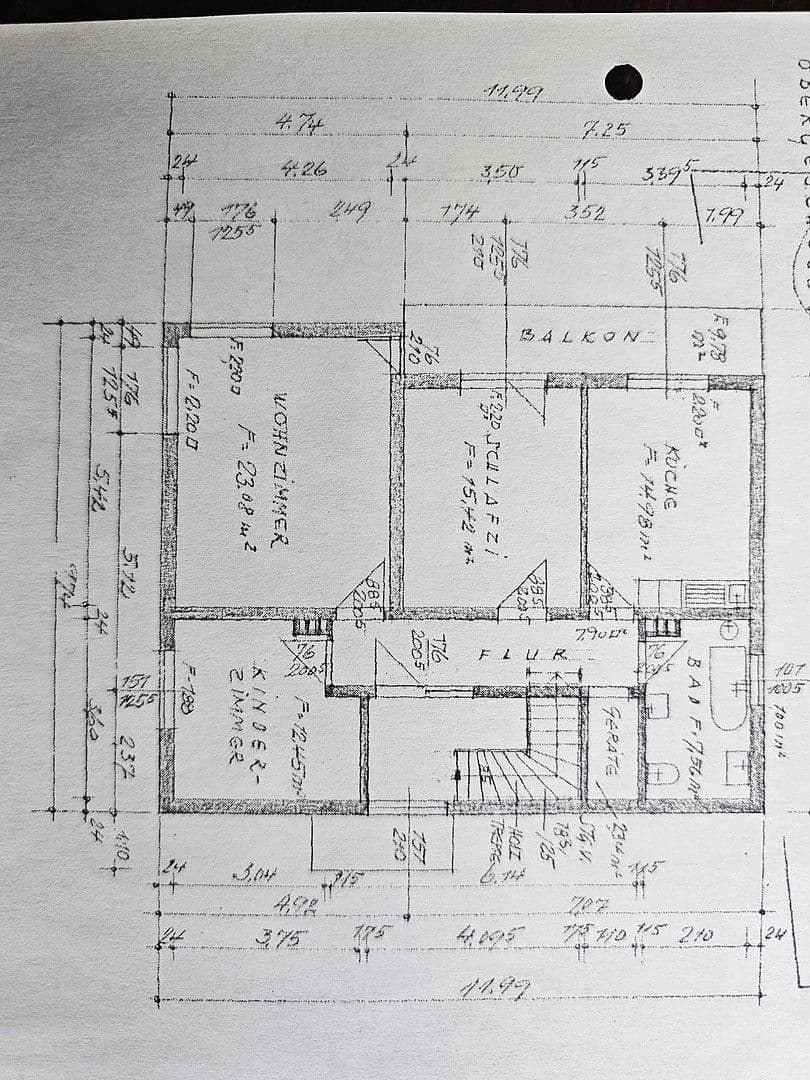 11.99
4.74
7.25
24
4.26
24
3.50
115
339⁵
24
49
176
125⁵
249
174
352
1.99
176
125⁵
210
176
125⁵
BALKON
F=9,78 m²
76
210
F=2,20
F=2,20
WOHNZIMMER
F=23,08 m²
F=2,20
SCHLAFZI
F=15,42 m²
F=2,20
KÜCHE
F=14,98 m²
49
24
176
125⁵
5.42
5.12
24
151
125⁵
3.60
237
24
1.10
88⁵
200⁵
88⁵
200⁵
88⁵
200⁵
7.90 m²
FLUR
76
200⁵
176
200⁵
76
200⁵
F=1,80
KINDER-
ZIMMER
F=12,45 m²
GERÄTE
BAD F=7,56 m²
101
100⁵
1,00 m²
HOLZ
TREPPE
STG. V.
151
210
24
3.04
115
6.14
115
4.92
7.07
24
3.75
175
4.095
175
110
115
210
24
11.99